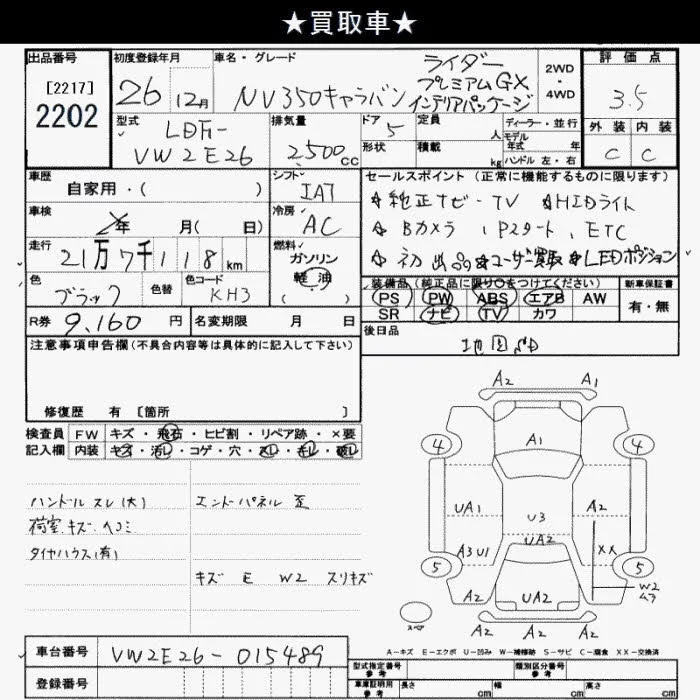 ★買取車★
出品番号 初度登録年月 車名・グレード 評価点
[2217]
2202
26 12月
NV350キャラバン
ライダー
プレミアムGX
インテリアパッケージ
2WD
・
4WD
3.5
型式 LDF-
VW2E26
排気量
2,500cc
ドア 5
形状
定員 人
積載 kg
ディーラー・並行
モデル
年式 年
ハンドル 左・右
外装 内装
C C
車歴
自家用・( )
シフト
IAT
車検
年 月( 日)
冷房
AC
走行
21万7千118km
燃料
ガソリン
軽油
( )
色
ブラック
色替
色コード
KH3
R券 9,160円
名変期限 月 日
セールスポイント (正常に機能するものに限ります)
☆純正ナビ-TV ☆HIDライト
☆Bカメラ, Pスタート, ETC
☆初出品☆ユーザー買取☆LEDポジション
装備品(純正品に限り○をつけてください) 新車保証書
PS PW ABS エアB AW
SR ナビ TV カワ
有・無
後日品
地図SD
注意事項申告欄(不具合内容等は具体的に記入して下さい)
修復歴 有 [箇所 ]
検査員 FW キズ・飛石・ヒビ割・リペア跡・×要
記入欄 内装 キズ・汚レ・コゲ・穴・スレ・キレ・破レ
ハンドルスレ(大)
荷室キズ・ヘコミ
タイヤハウス(有)
エンドパネル 歪
キズ E W2 スリキズ
A2 A1
4 A1 4
UA1 U3 A2
UA2
A3U1 XX
5 5
W2
ムラ
A2 UA2 A2
スペア
A2 A2 A2
A-キズ E-エクボ U-凹み W-補修跡 S-サビ C-腐食 XX-交換済
車台番号 VW2E26-015489
登録番号
型式指定番号
参考
類別区分番号
参考
車庫証明用
参考
長さ cm 幅 cm 高さ cm